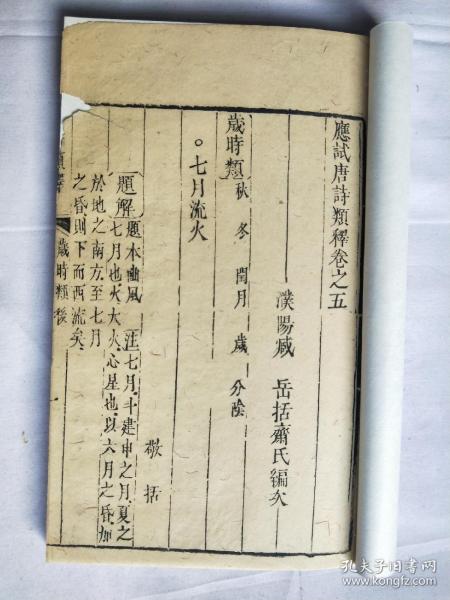 應試唐詩類釋卷之五
濮陽臧 岳括齋氏編次
歲時類 秋 冬 閏月 歲 分陰
○七月流火
敬括
題解 題本豳風 注 七月斗建申之月夏之
七月也火大火心星也以六月之昏加
於地之南方至七月
之昏則下而西流矣
類釋 歲時類後
孔夫子旧书网
www.kongfz.com